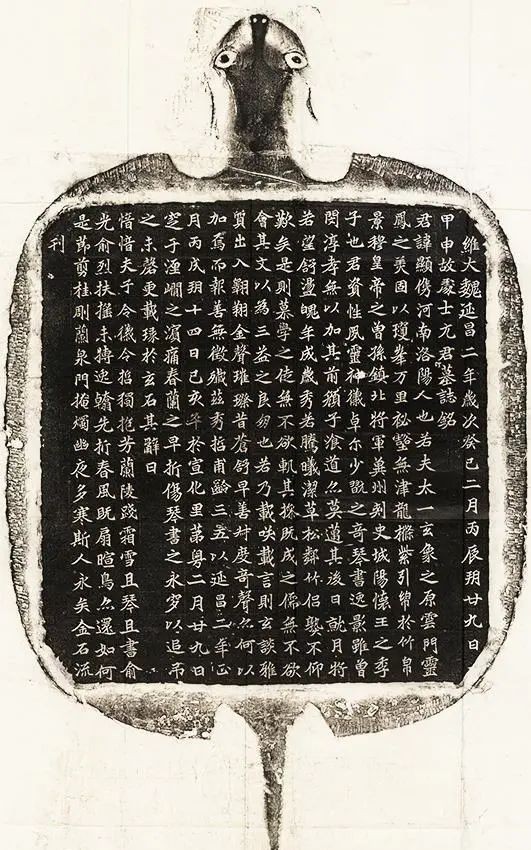 維大魏延昌二年歲次癸巳二月丙辰朔廿九日
甲申故處士元君墓誌銘
君諱顯儁河南洛陽人也若夫太一玄象之原雲門靈
鳳之美固以瓊峯萬里秘壑無津龍櫾紫引綿於竹帛
景穆皇帝之曾孫鎮北將軍冀州刺史城陽懷王之季
子也君資性夙靈神儀卓尔少翫之奇琴書逸影雖曾
閔淳孝無以加其前顏子湌道亦莫邁其後日就月將
若望舒盪魄年成歲秀若騰曦潔草松鄰竹侶熟不仰
歎矣是則慕學之徒無不欲軌其操既成之儒無不欲
會其文以為三益之良朋也若乃載咲載言則玄談雅
質出入翱翔金聲璀璨昔蒼舒早善叔度奇聲亦何以
加焉而報善無徵殲茲秀哲甫齡三五以延昌二年正
月丙戌朔十四日己亥卒於宣化里第粵二月廿九日
窆于瀍澗之濱痛春蘭之早折傷琴書之永穸以追吊
之未罄更載琢於玄石其辭曰
愔愔夫子令儀令哲獨抱芳蘭陵踐霜雪且琴且書俞
光俞烈扶搖未摶逸翰先折春風既扇暄鳥亦還如何
是節剪桂剿蘭泉門掩燭幽夜多寒斯人永矣金石流
刊